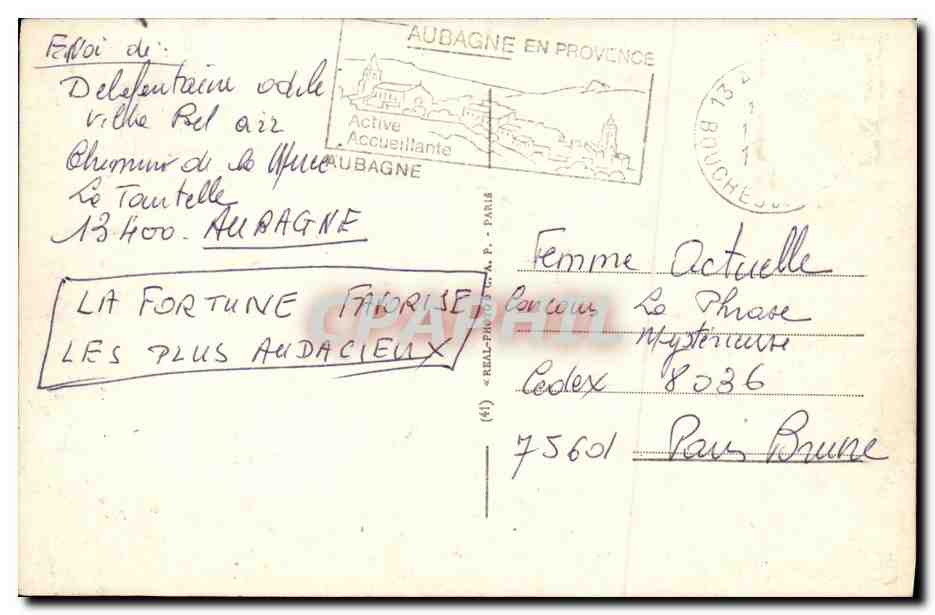 Envoi de :
Delafontaine odile
villa Bel air
Chemin de la
La Tourtelle
13400. AUBAGNE
LA FORTUNE FAVORISE
LES PLUS AUDACIEUX
AUBAGNE EN PROVENCE
Active
Accueillante
AUBAGNE
13
BOUCHES
(41) « REAL-PHOTO » C. A. P. - PARIS
CPARHIL
Femme Actuelle
Concours La Phrase
Mystérieuse
Cedex 8036
75601 Paris Brune